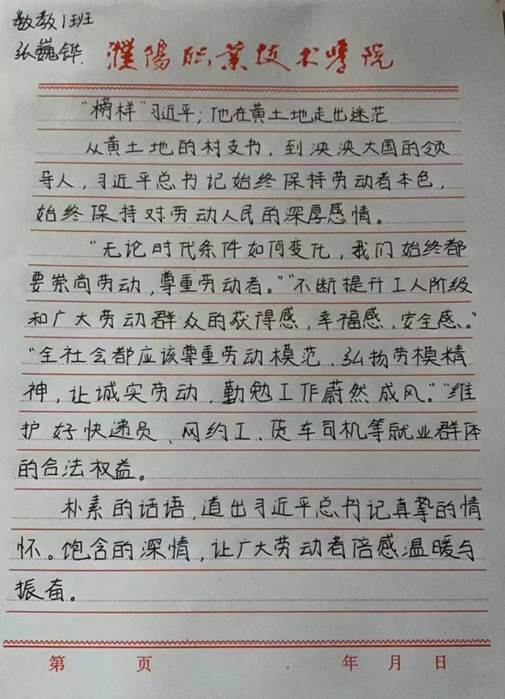 数教1班
张巍铧
濮阳职业技术学院
“榜样”习近平；他在黄土地走出迷茫
从黄土地的村支书，到泱泱大国的领
导人，习近平总书记始终保持劳动者本色，
始终保持对劳动人民的深厚感情。
“无论时代条件如何变化，我们始终都
要崇尚劳动，尊重劳动者。”“不断提升工人阶级
和广大劳动群众的获得感，幸福感、安全感、”
“全社会都应该尊重劳动模范、弘扬劳模精
神，让诚实劳动，勤勉工作蔚然成风。”“维
护好快递员、网约工、货车司机等就业群体
的合法权益。
朴素的话语，道出习近平总书记真挚的情
怀。饱含的深情，让广大劳动者倍感温暖与
振奋。
第 页 年 月 日